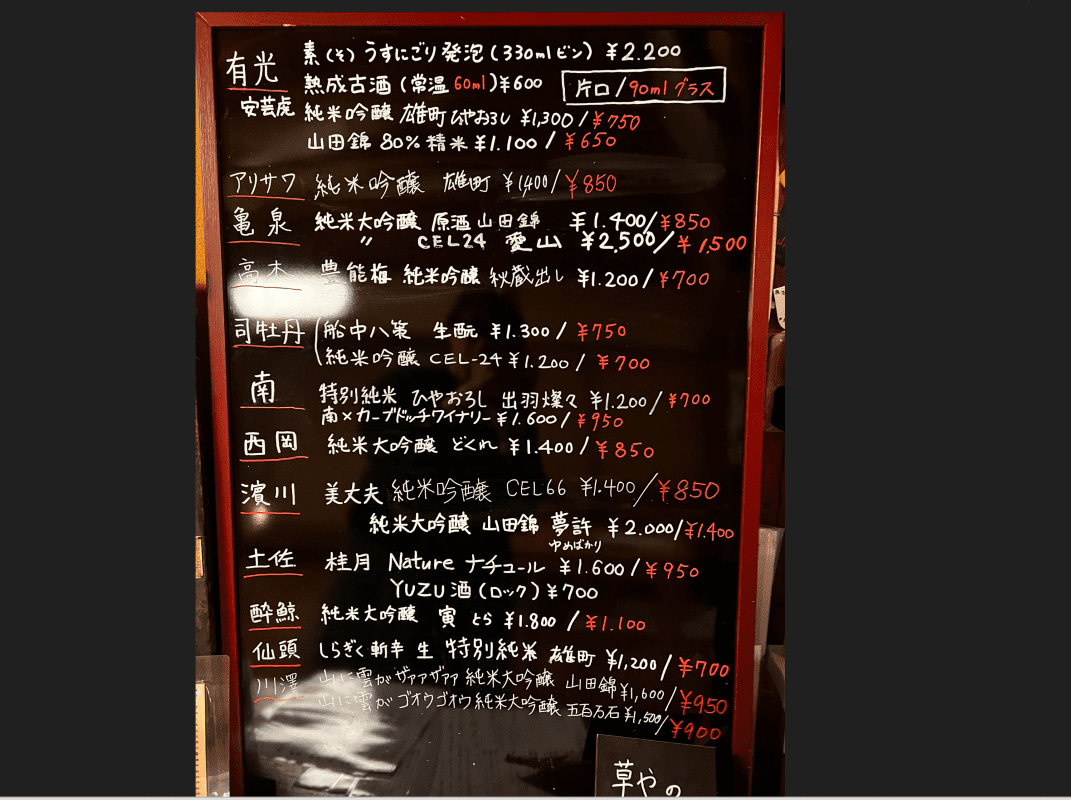 有光 素(そ) うすにごり発泡(330mlビン) ¥2.200
熟成古酒(常温60ml)¥600 片口/90mlグラス
安芸虎 純米吟醸 雄町 ひやおろし ¥1,300/¥750
山田錦 80%精米 ¥1.100/¥650
アリサワ 純米吟醸 雄町 ¥1,400/¥850
亀泉 純米大吟醸 原酒 山田錦 ¥1.400/¥850
〃 CEL24 愛山 ¥2,500/¥1,500
高木 豊能梅 純米吟醸 秋蔵出し ¥1.200/¥700
司牡丹 船中八策 生酛 ¥1.300/¥750
純米吟醸 CEL-24 ¥1.200/¥700
南 特別純米 ひやおろし 出羽燦々 ¥1.200/¥700
南×カーブドッチワイナリー ¥1.600/¥950
西岡 純米大吟醸 どくれ ¥1.400/¥850
濱川 美丈夫 純米吟醸 CEL66 ¥1.400/¥850
純米大吟醸 山田錦 夢許 ¥2.000/¥1.400
ゆめばかり
土佐 桂月 Nature ナチュール ¥1.600/¥950
YUZU酒(ロック)¥700
酔鯨 純米大吟醸 寅 とら ¥1.800/¥1.100
仙頭 しらぎく 斬辛 生 特別純米 雄町 ¥1,200/¥700
川澤 山に雲が ザァァザァァ 純米大吟醸 山田錦 ¥1,600/¥950
山に雲が ゴオウゴオウ 純米大吟醸 五百万石 ¥1,500/¥900
草やの